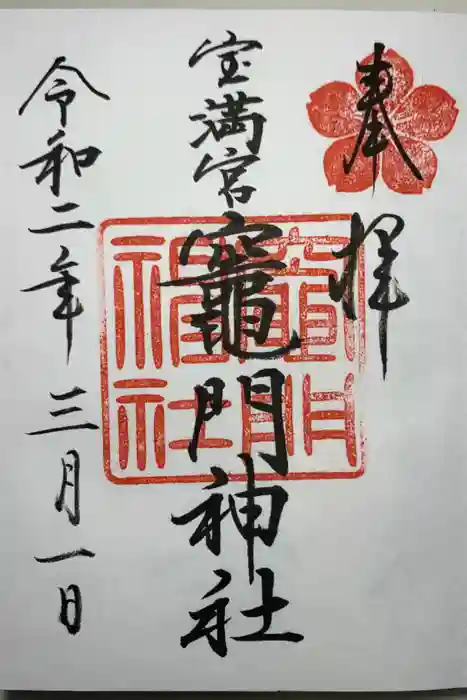 奉拝
宝満宮
竈門神社
令和二年三月一日
竈門神社